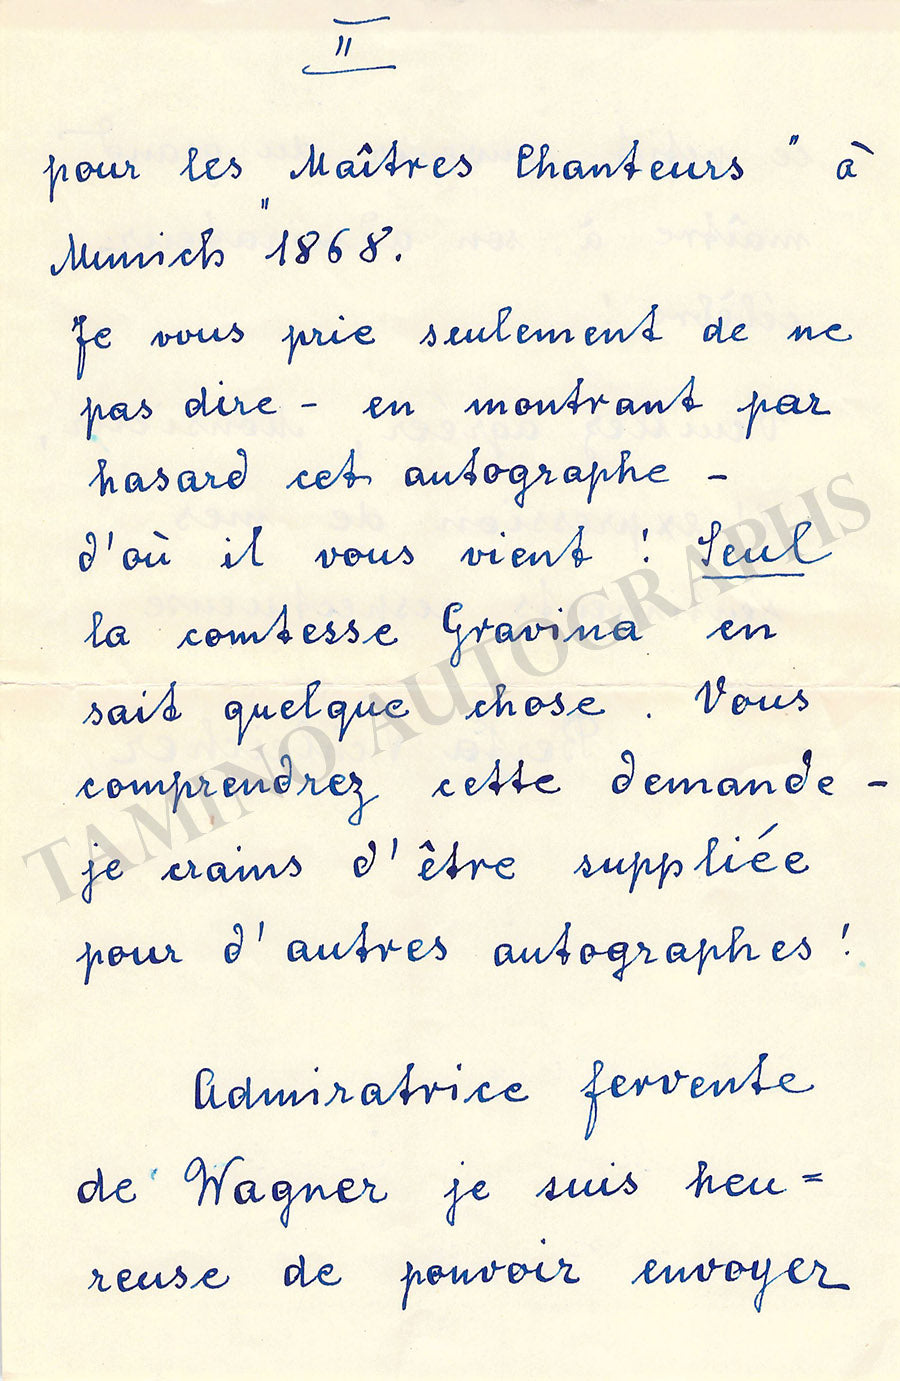 II
pour les "Maîtres Chanteurs" à
Munich "1868.
Je vous prie seulement de ne
pas dire – en montrant par
hasard cet autographe –
d'où il vous vient! Seul
la comtesse Gravina en
sait quelque chose. Vous
comprendrez cette demande –
je crains d'être suppliée
pour d'autres autographes!
Admiratrice fervente
de Wagner je suis heu=
reuse de pouvoir envoyer
TAMINO AUTOGRAPHS